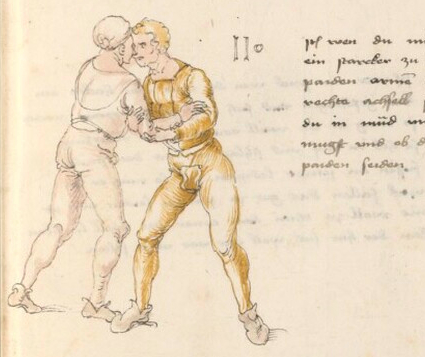 110
Itm wen du
ein starcker zu
paiden armē
rechte achsell
du in mitt
mugst vnd ob d
paiden seiden